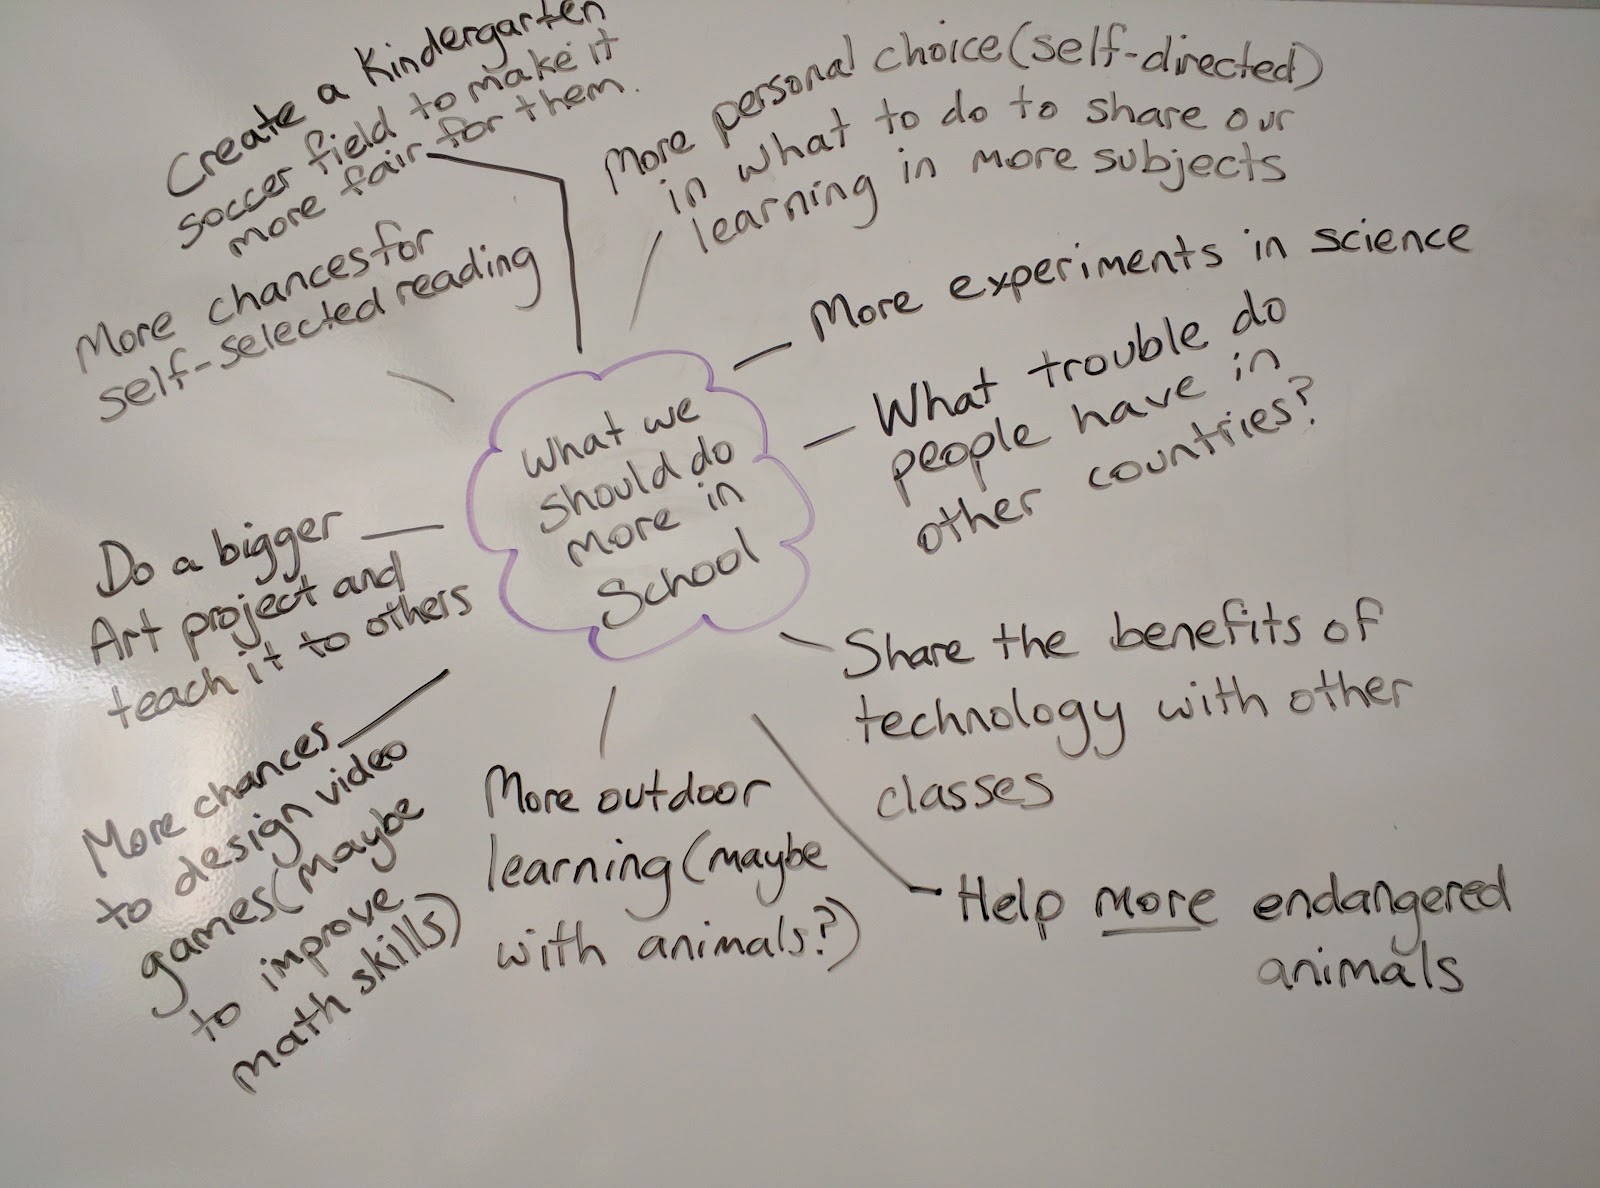 Create a Kindergarten
soccer field to make it
more fair for them.
More personal choice (self-directed)
in what to do to share our
learning in more subjects
More chances for
self-selected reading
More experiments in science
What trouble do
people have in
other countries?
What we
should do
more in
School
Do a bigger
Art project and
teach it to others
Share the benefits of
technology with other
classes
More chances
to design video
games (maybe
to improve
math skills)
More outdoor
learning (maybe
with animals?)
Help more endangered
animals